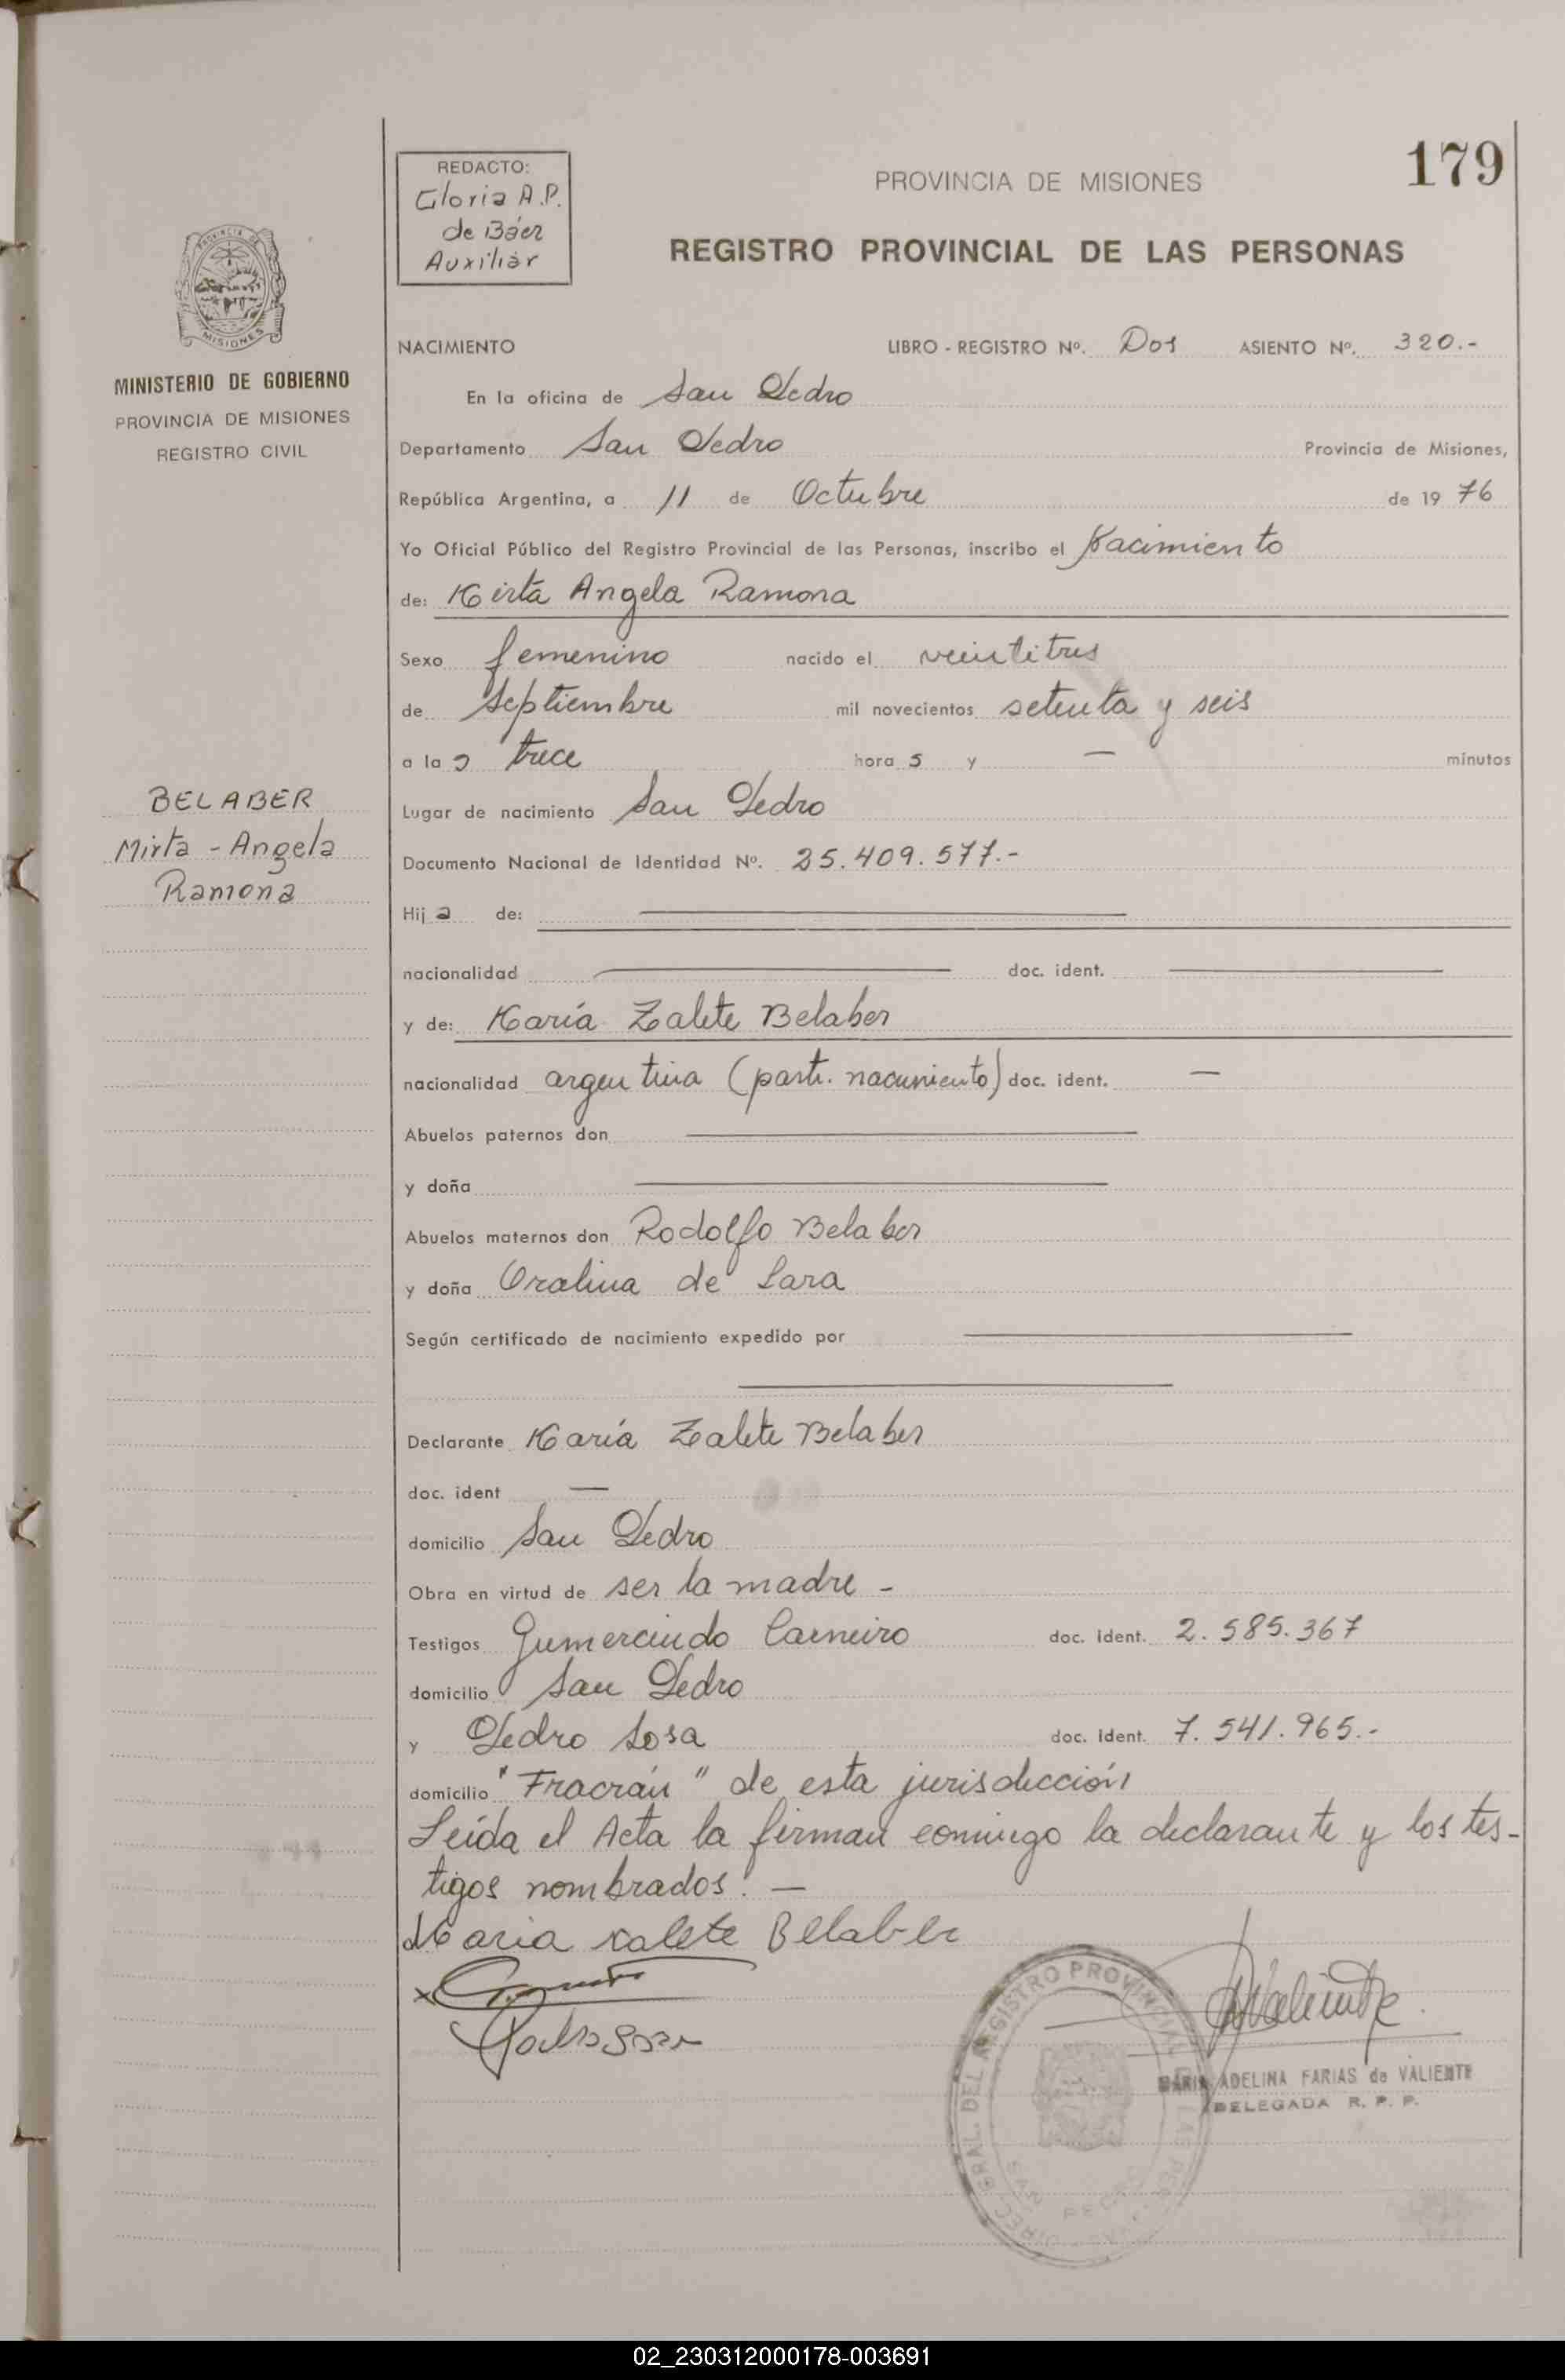 179
REDACTO:
Gloria A.P.
de Báez
Auxiliar
PROVINCIA DE MISIONES
REGISTRO PROVINCIAL DE LAS PERSONAS
PROVINCIA DE
MISIONES
MINISTERIO DE GOBIERNO
PROVINCIA DE MISIONES
REGISTRO CIVIL
BELABER
Mirta - Angela
Ramona
NACIMIENTO LIBRO - REGISTRO Nº. Dos ASIENTO Nº. 320.-
En la oficina de San Pedro
Departamento San Pedro Provincia de Misiones,
República Argentina, a 11 de Octubre de 19 76
Yo Oficial Público del Registro Provincial de las Personas, inscribo el Nacimiento
de: Mirta Angela Ramona
Sexo femenino nacido el veintitres
de Septiembre mil novecientos setenta y seis
a la s trece hora s y — minutos
Lugar de nacimiento San Pedro
Documento Nacional de Identidad Nº. 25.409.577.-
Hij a de: —
nacionalidad — doc. ident. —
y de: María Zalete Belaber
nacionalidad argentina (part. nacimiento) doc. ident. —
Abuelos paternos don —
y doña —
Abuelos maternos don Rodolfo Belaber
y doña Oralina de Lara
Según certificado de nacimiento expedido por —
—
Declarante María Zalete Belaber
doc. ident —
domicilio San Pedro
Obra en virtud de ser la madre -
Testigos Gumercindo Carneiro doc. ident. 2.585.367
domicilio San Pedro
y Pedro Sosa doc. ident. 7.541.965.-
domicilio "Fracrán" de esta jurisdicción
Leída el Acta la firman conmigo la declarante y los tes-
tigos nombrados. —
Maria xalete Belaber
Pedro Sosa
Valiente
MARIA ADELINA FARIAS de VALIENTE
DELEGADA R. P. P.
DIREC. GRAL. DEL REGISTRO PROVINCIAL DE LAS PERSONAS
SAN PEDRO
02_230312000178-003691